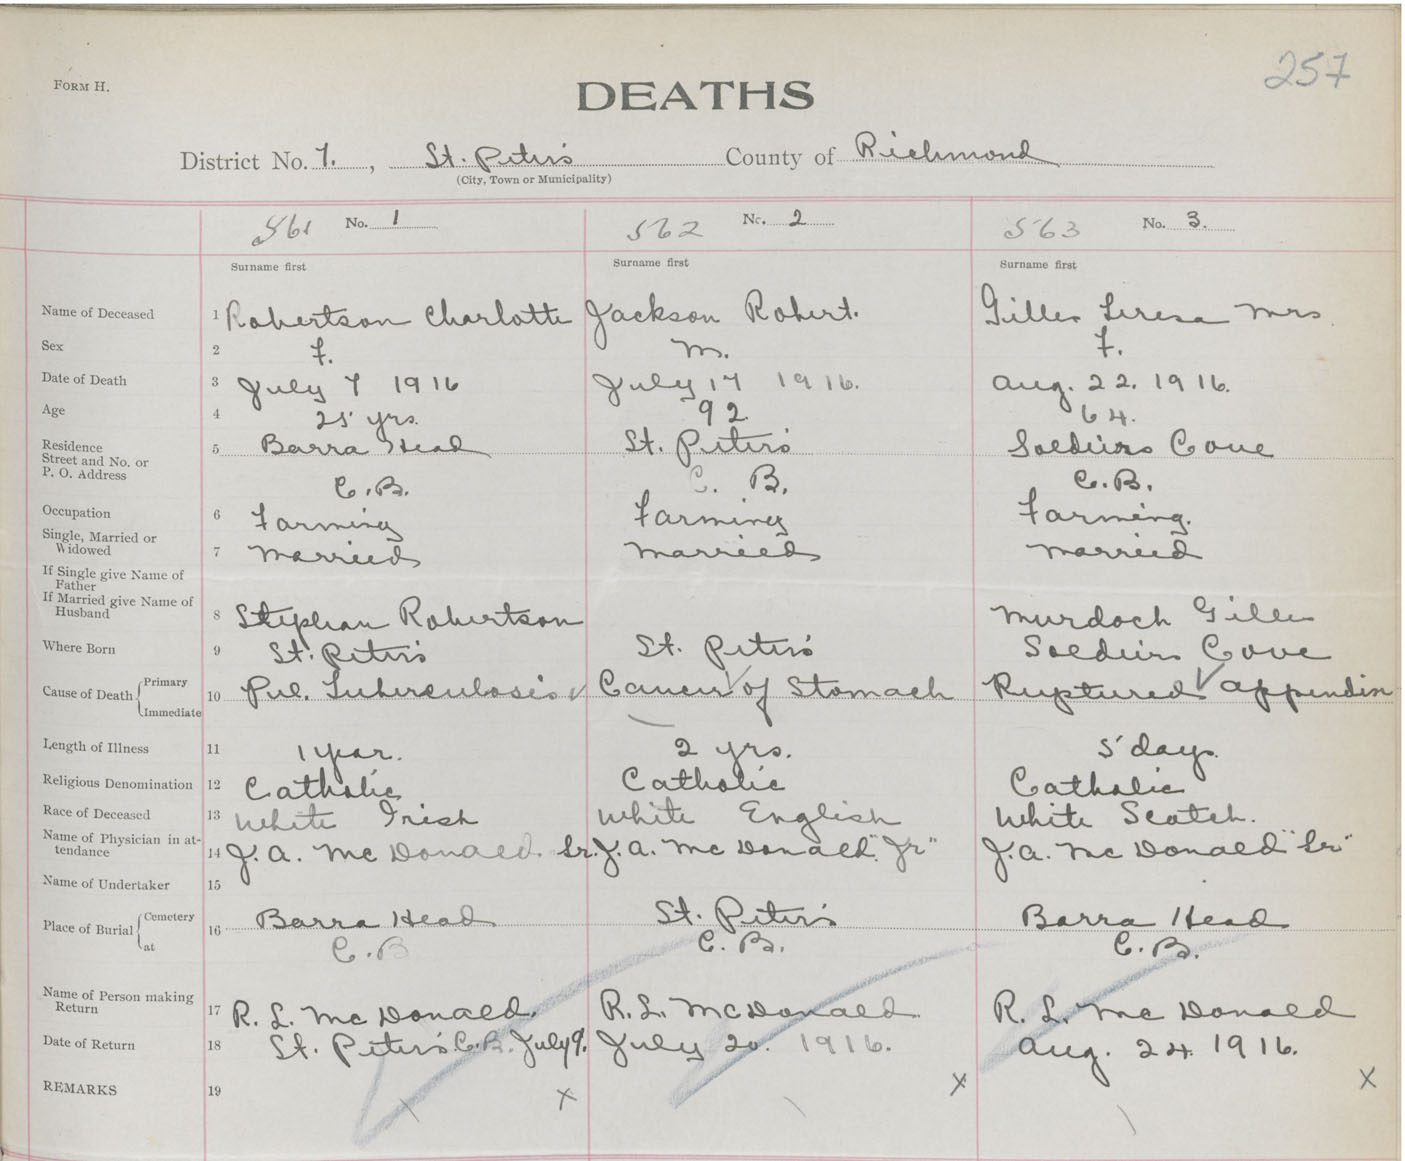 257
FORM H.
DEATHS
District No. 7. , St. Peter's County of Richmond
(City, Town or Municipality)
561 No. 1 562 No. 2 563 No. 3.
Surname first Surname first Surname first
Name of Deceased 1 Robertson Charlotte Jackson Robert. Gillis Teresa Mrs.
Sex 2 F. M. F.
Date of Death 3 July 7 1916 July 17 1916. Aug. 22. 1916.
Age 4 25 yrs. 92 64.
Residence Street and No. or P. O. Address 5 Barra Head St. Peter's Soldiers Cove
C.B. C. B. C.B.
Occupation 6 Farming Farming Farming.
Single, Married or Widowed 7 Married Married Married
If Single give Name of Father
If Married give Name of Husband 8 Stephan Robertson Murdoch Gillis
Where Born 9 St. Peter's St. Peter's Soldiers Cove
Cause of Death { Primary Immediate 10 Pul. Tuberculosis Cancer of Stomach Ruptured appendix
Length of Illness 11 1 year. 2 yrs. 5 days.
Religious Denomination 12 Catholic Catholic Catholic
Race of Deceased 13 White Irish White English White Scotch.
Name of Physician in attendance 14 J. A. McDonald. Sr. J. A. McDonald "Jr" J. A. McDonald "Sr"
Name of Undertaker 15
Place of Burial { Cemetery at 16 Barra Head St. Peter's Barra Head
C.B C. B. C. B.
Name of Person making Return 17 R. L. McDonald. R. L. McDonald. R. L. McDonald
Date of Return 18 St. Peter's C.B. July 9. July 20. 1916. Aug. 24. 1916.
REMARKS 19 x x x